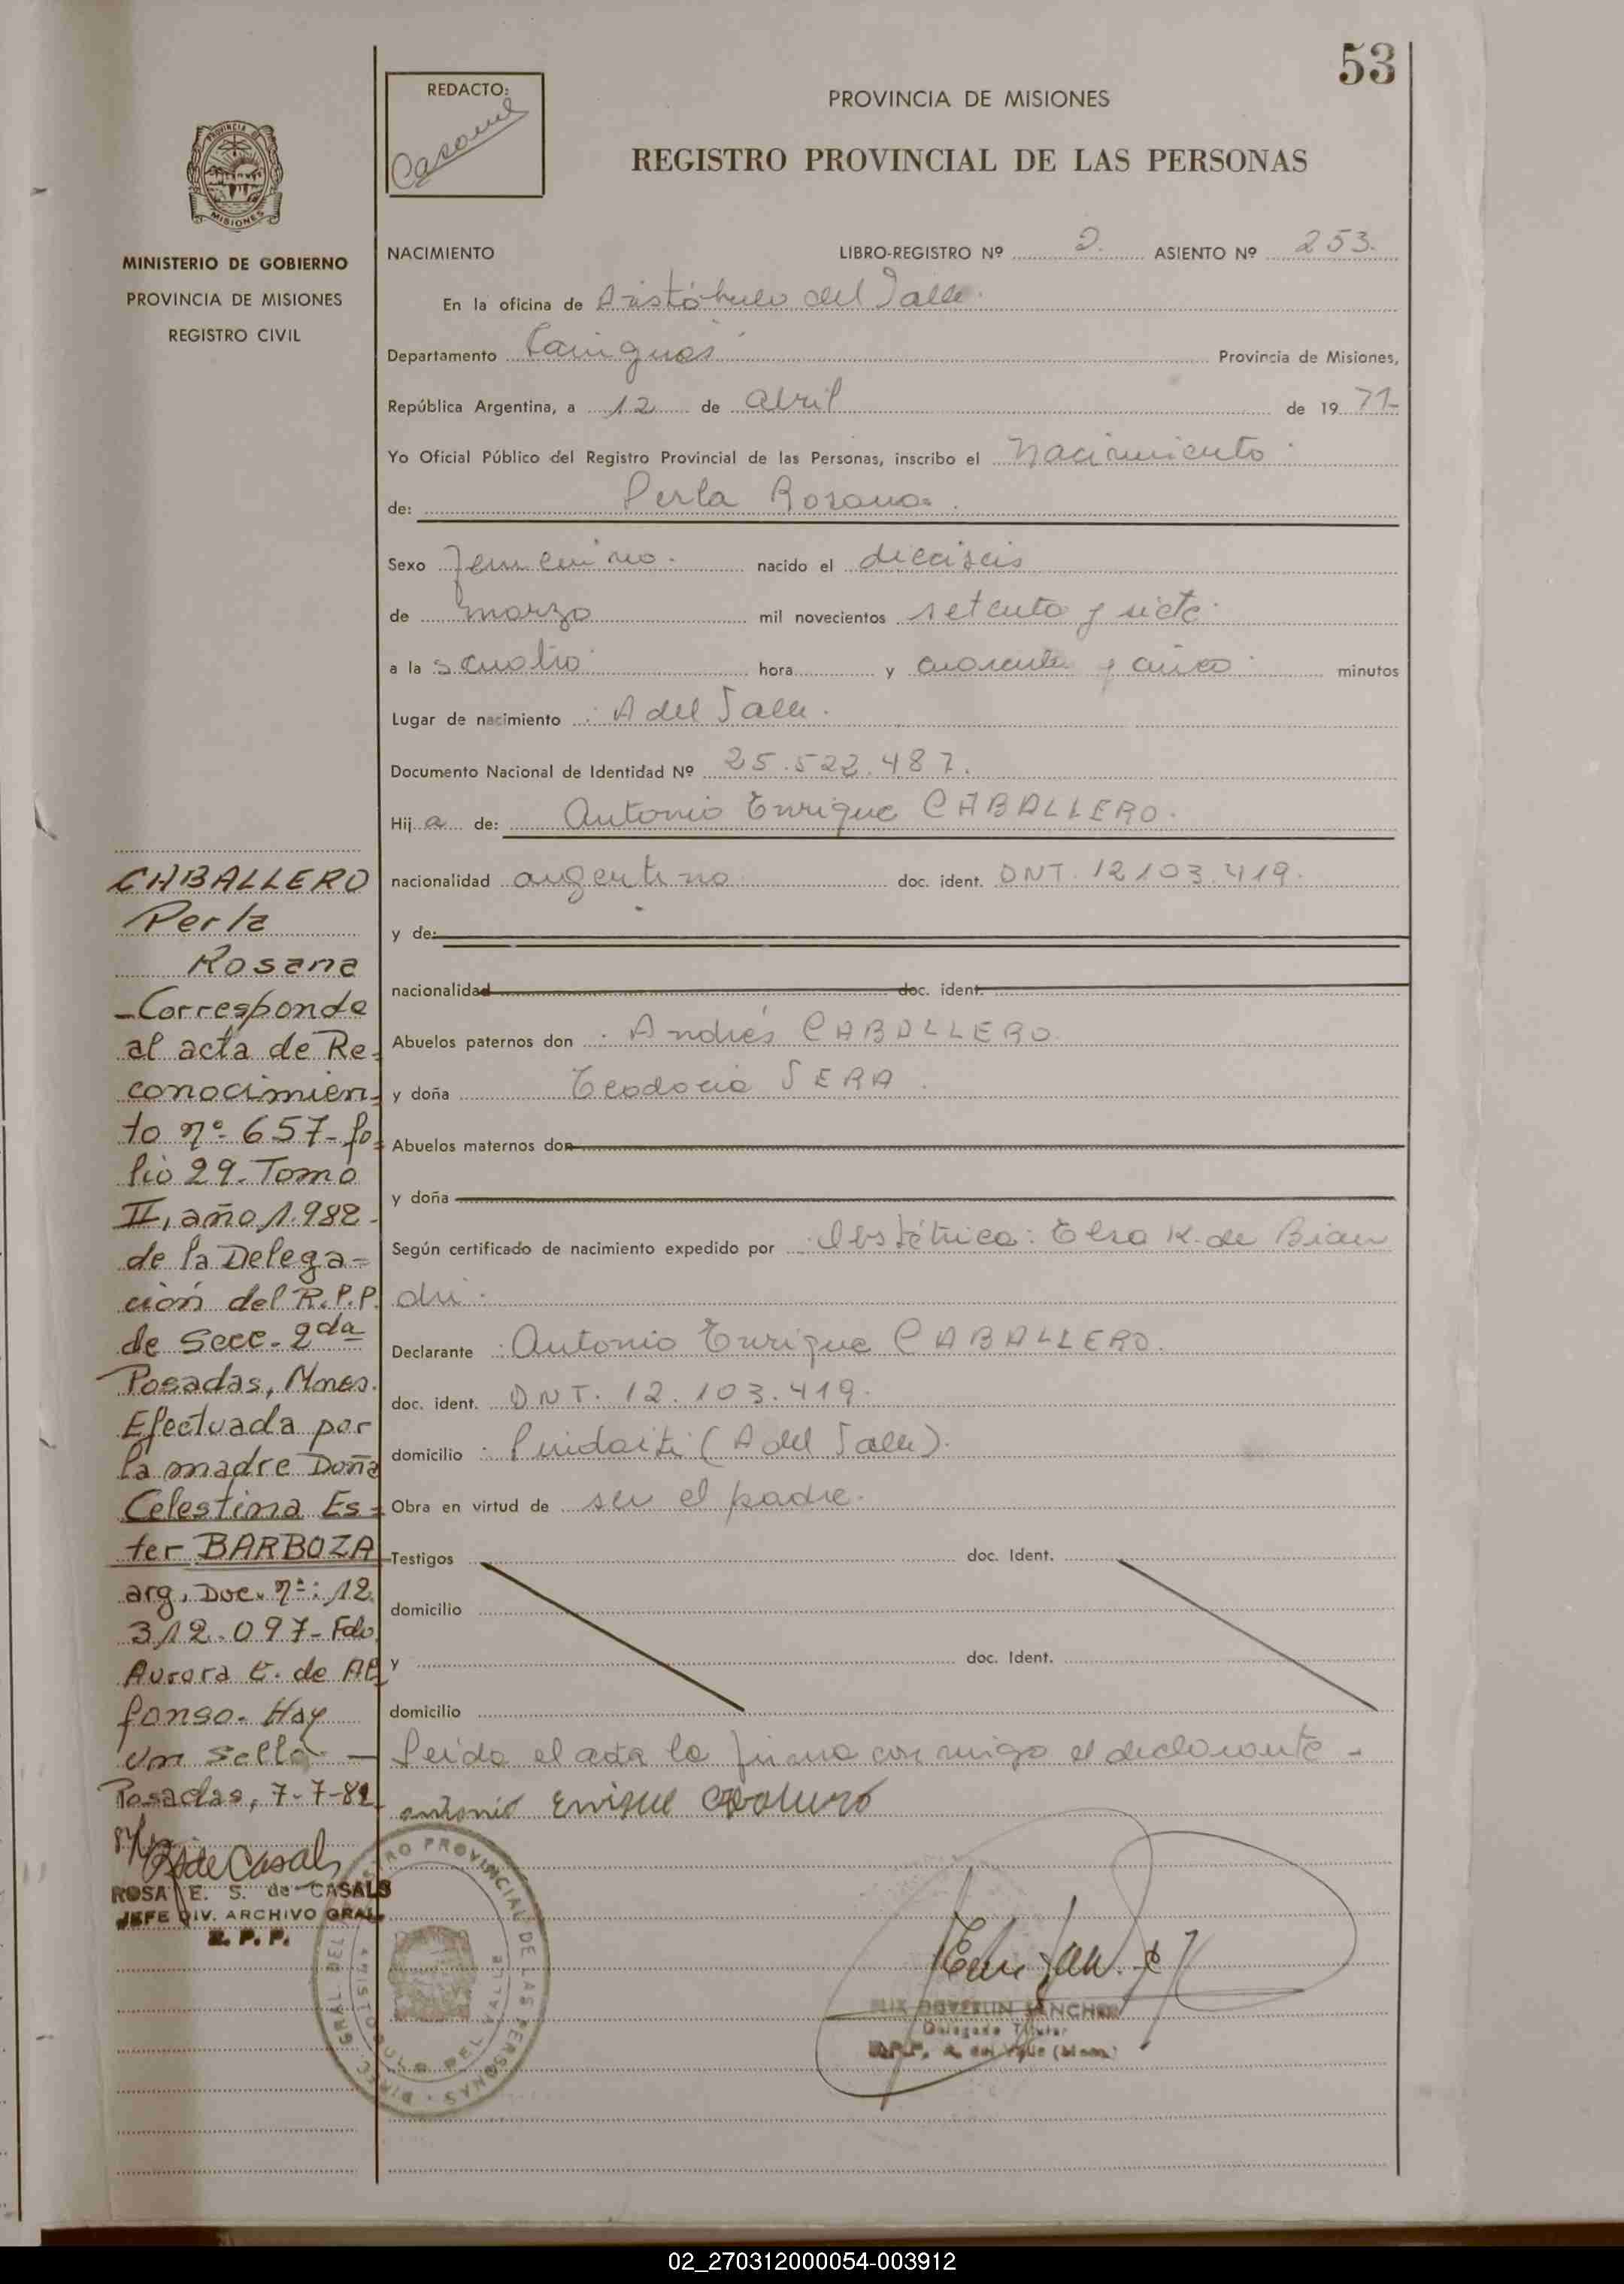 53
REDACTO:
PROVINCIA DE MISIONES
REGISTRO PROVINCIAL DE LAS PERSONAS
PROVINCIA DE
MISIONES
MINISTERIO DE GOBIERNO
PROVINCIA DE MISIONES
REGISTRO CIVIL
NACIMIENTO LIBRO-REGISTRO Nº 2. ASIENTO Nº 253.
En la oficina de Aristóbulo del Valle.
Departamento Cainguas Provincia de Misiones,
República Argentina, a 12 de abril de 19 77-
Yo Oficial Público del Registro Provincial de las Personas, inscribo el Nacimiento
de: Perla Rosana
Sexo femenino. nacido el dieciseis
de marzo mil novecientos setenta y siete.
a la s cuatro hora y cuarenta y cinco minutos
Lugar de nacimiento A del Valle.
Documento Nacional de Identidad Nº 25.522.487.
Hij a de: Antonio Enrique CABALLERO.
nacionalidad argentino doc. ident. DNI. 12103.419.
y de:
nacionalidad doc. ident.
Abuelos paternos don Andrés CABALLERO
y doña Teodocia VERA
Abuelos maternos don
y doña
Según certificado de nacimiento expedido por Obstétrica: Elsa K. de Bian
dri.
Declarante Antonio Enrique CABALLERO.
doc. ident. DNI. 12.103.419.
domicilio (A del Valle).
Obra en virtud de ser el padre.
Testigos doc. Ident.
domicilio
y doc. Ident.
domicilio
Leida el acta la firma conmigo el declarante -
Antonio Enrique Caballero
CABALLERO
Perla
Rosana
-Corresponde
al acta de Re-
conocimien-
to nº 657-fo-
lio 29. Tomo
II, año 1.982-
de la Delega-
ción del R.P.P.
de Secc. 2da
Posadas, Mnes.
Efectuada por
la madre Doña
Celestina Es-
ter BARBOZA
arg. Doc. nº: 12.
312.097- Fdo.
Aurora E. de Al-
fonso. Hay
un sello -
Posadas, 7-7-82
R S de Casals
ROSA E. S. de CASALS
JEFE DIV. ARCHIVO GRAL.
R. P. P.
DIREC. GRAL. DEL REGISTRO PROVINCIAL DE LAS PERSONAS
ARISTOBULO DEL VALLE
SANCHEZ
Delegado Titular
R.P.P. A. del Valle (Mnes.)
02_270312000054-003912